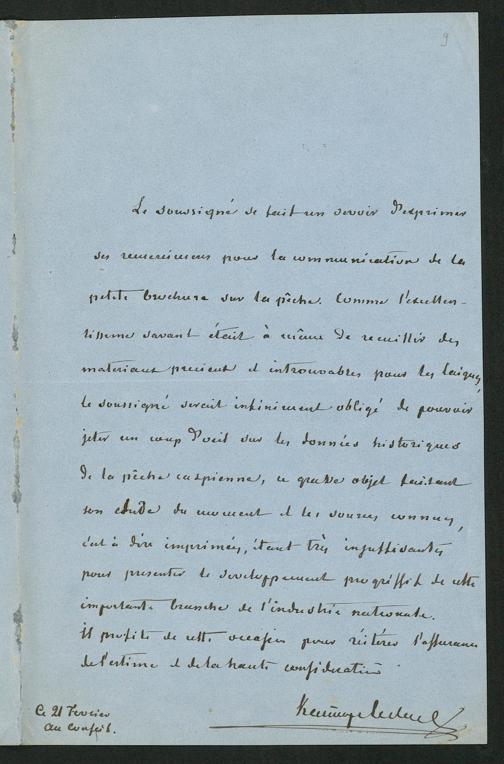 9
Le soussigné se fait un devoir d'exprimer
ses remercimens pour la communication de la
petite brochure sur la pêche. Comme l'excellen-
tissime savant était à même de recuillir des
matériaux precieux et introuvables pour les laiques,
le soussigné serait infiniment obligé de pouvoir
jeter un coup d'oeil sur les données historiques
de la pêche caspienne, ce grave objet faisant
son etude du moment et les sources connues,
c'est à dire imprimées, étant très insuffisantes
pour presenter le developpement progressif de cette
importante branche de l'industrie nationale.
Il profite de cette occasion pour réitérer l'assurance
de l'estime et de la haute considération
Ce 21 Fevrier
au Corps.